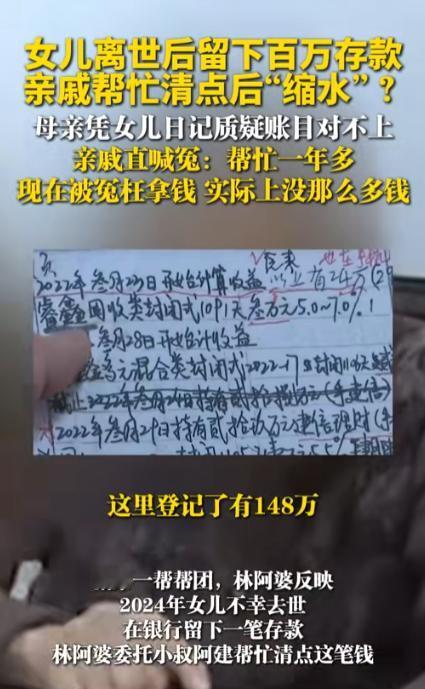 女儿离世后留下百万存款
亲戚帮忙清点后“缩水”？
母亲凭女儿日记质疑账目对不上
亲戚直喊冤：帮忙一年多
现在被冤枉拿钱 实际上没那么多钱
2022年叁月23日开始计算收益
固收类封闭式1091天叁万元5.0-7.0%
叁月28日开始计收益
混合类封闭式2022-17
截止2022年叁月24日持有贰拾
2022年叁月29日持有贰拾玖万
这里登记了有148万
一帮帮团，林阿婆反映
2024年女儿不幸去世
在银行留下一笔存款
林阿婆委托小叔阿建帮忙清点这笔钱